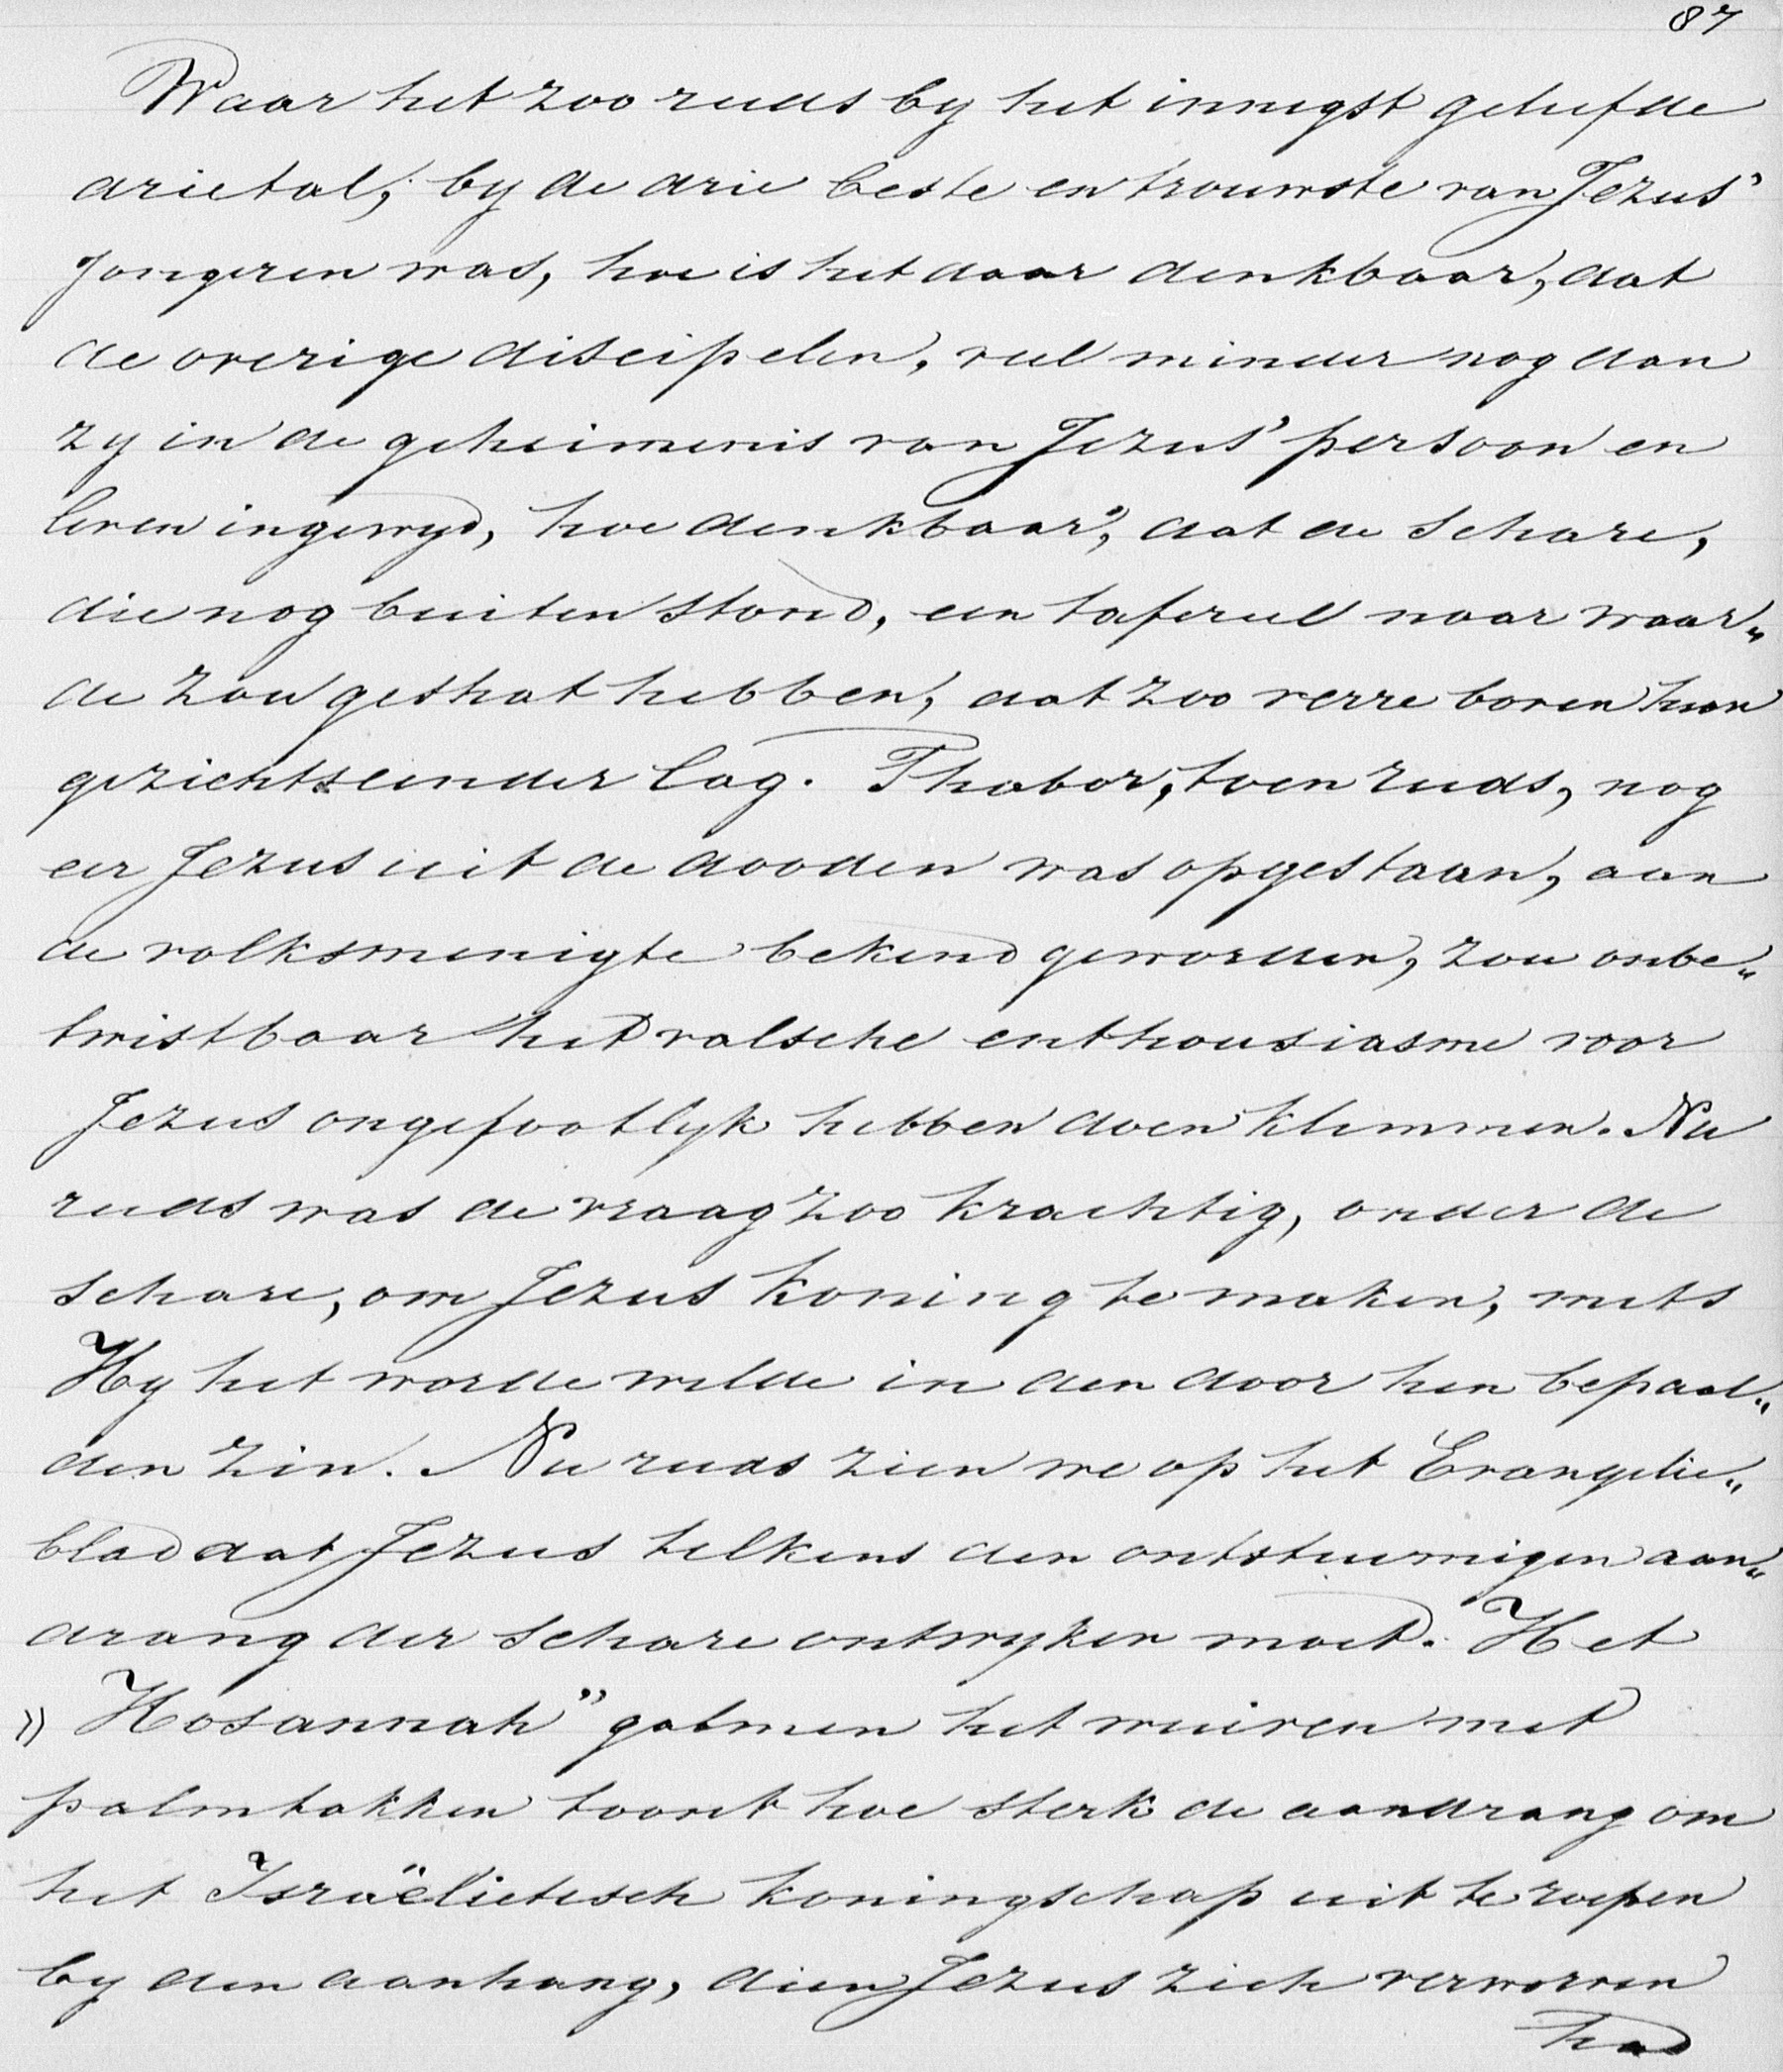 87
Waar het zoo reeds by het innigst geliefde
drietal, by de drie beste en trouwste van Jezus'
jongeren was, hoe is het daar denkbaar, dat
de overige discipelen, veel minder nog dan
zy in de geheimenis van Jezus' persoon en
leven ingewyd, hoe denkbaar, dat de schare,
die nog buiten stond, een tafereel naar waar„
de zou geshat hebben, dat zoo verre boven hun
gezichtseinder lag. Thabor, toen reeds, nog
eer Jezus uit de dooden was opgestaan, aan
de volksmenigte bekend geworden, zou onbe„
twistbaar het valsche enthousiasme voor
Jezus ongelooflyk hebben doen klimmen. Nu
reeds was de vraag zoo krachtig, onder de
schare, om Jezus koning te maken, mits
Hy het worde wilde in den door hen bepaal„
den zin. Nu reeds zien we op het Evangelie„
blad dat Jezus telkens den ontstuimigen aan„
drang der schare ontwyken moet. Het
„Hosannah” galmen het wuiven met
palmtakken toont hoe sterk de aandrang om
het Israëlietisch koningschap uit te roepen
by den aanhang, dien Jezus zich verworven
had